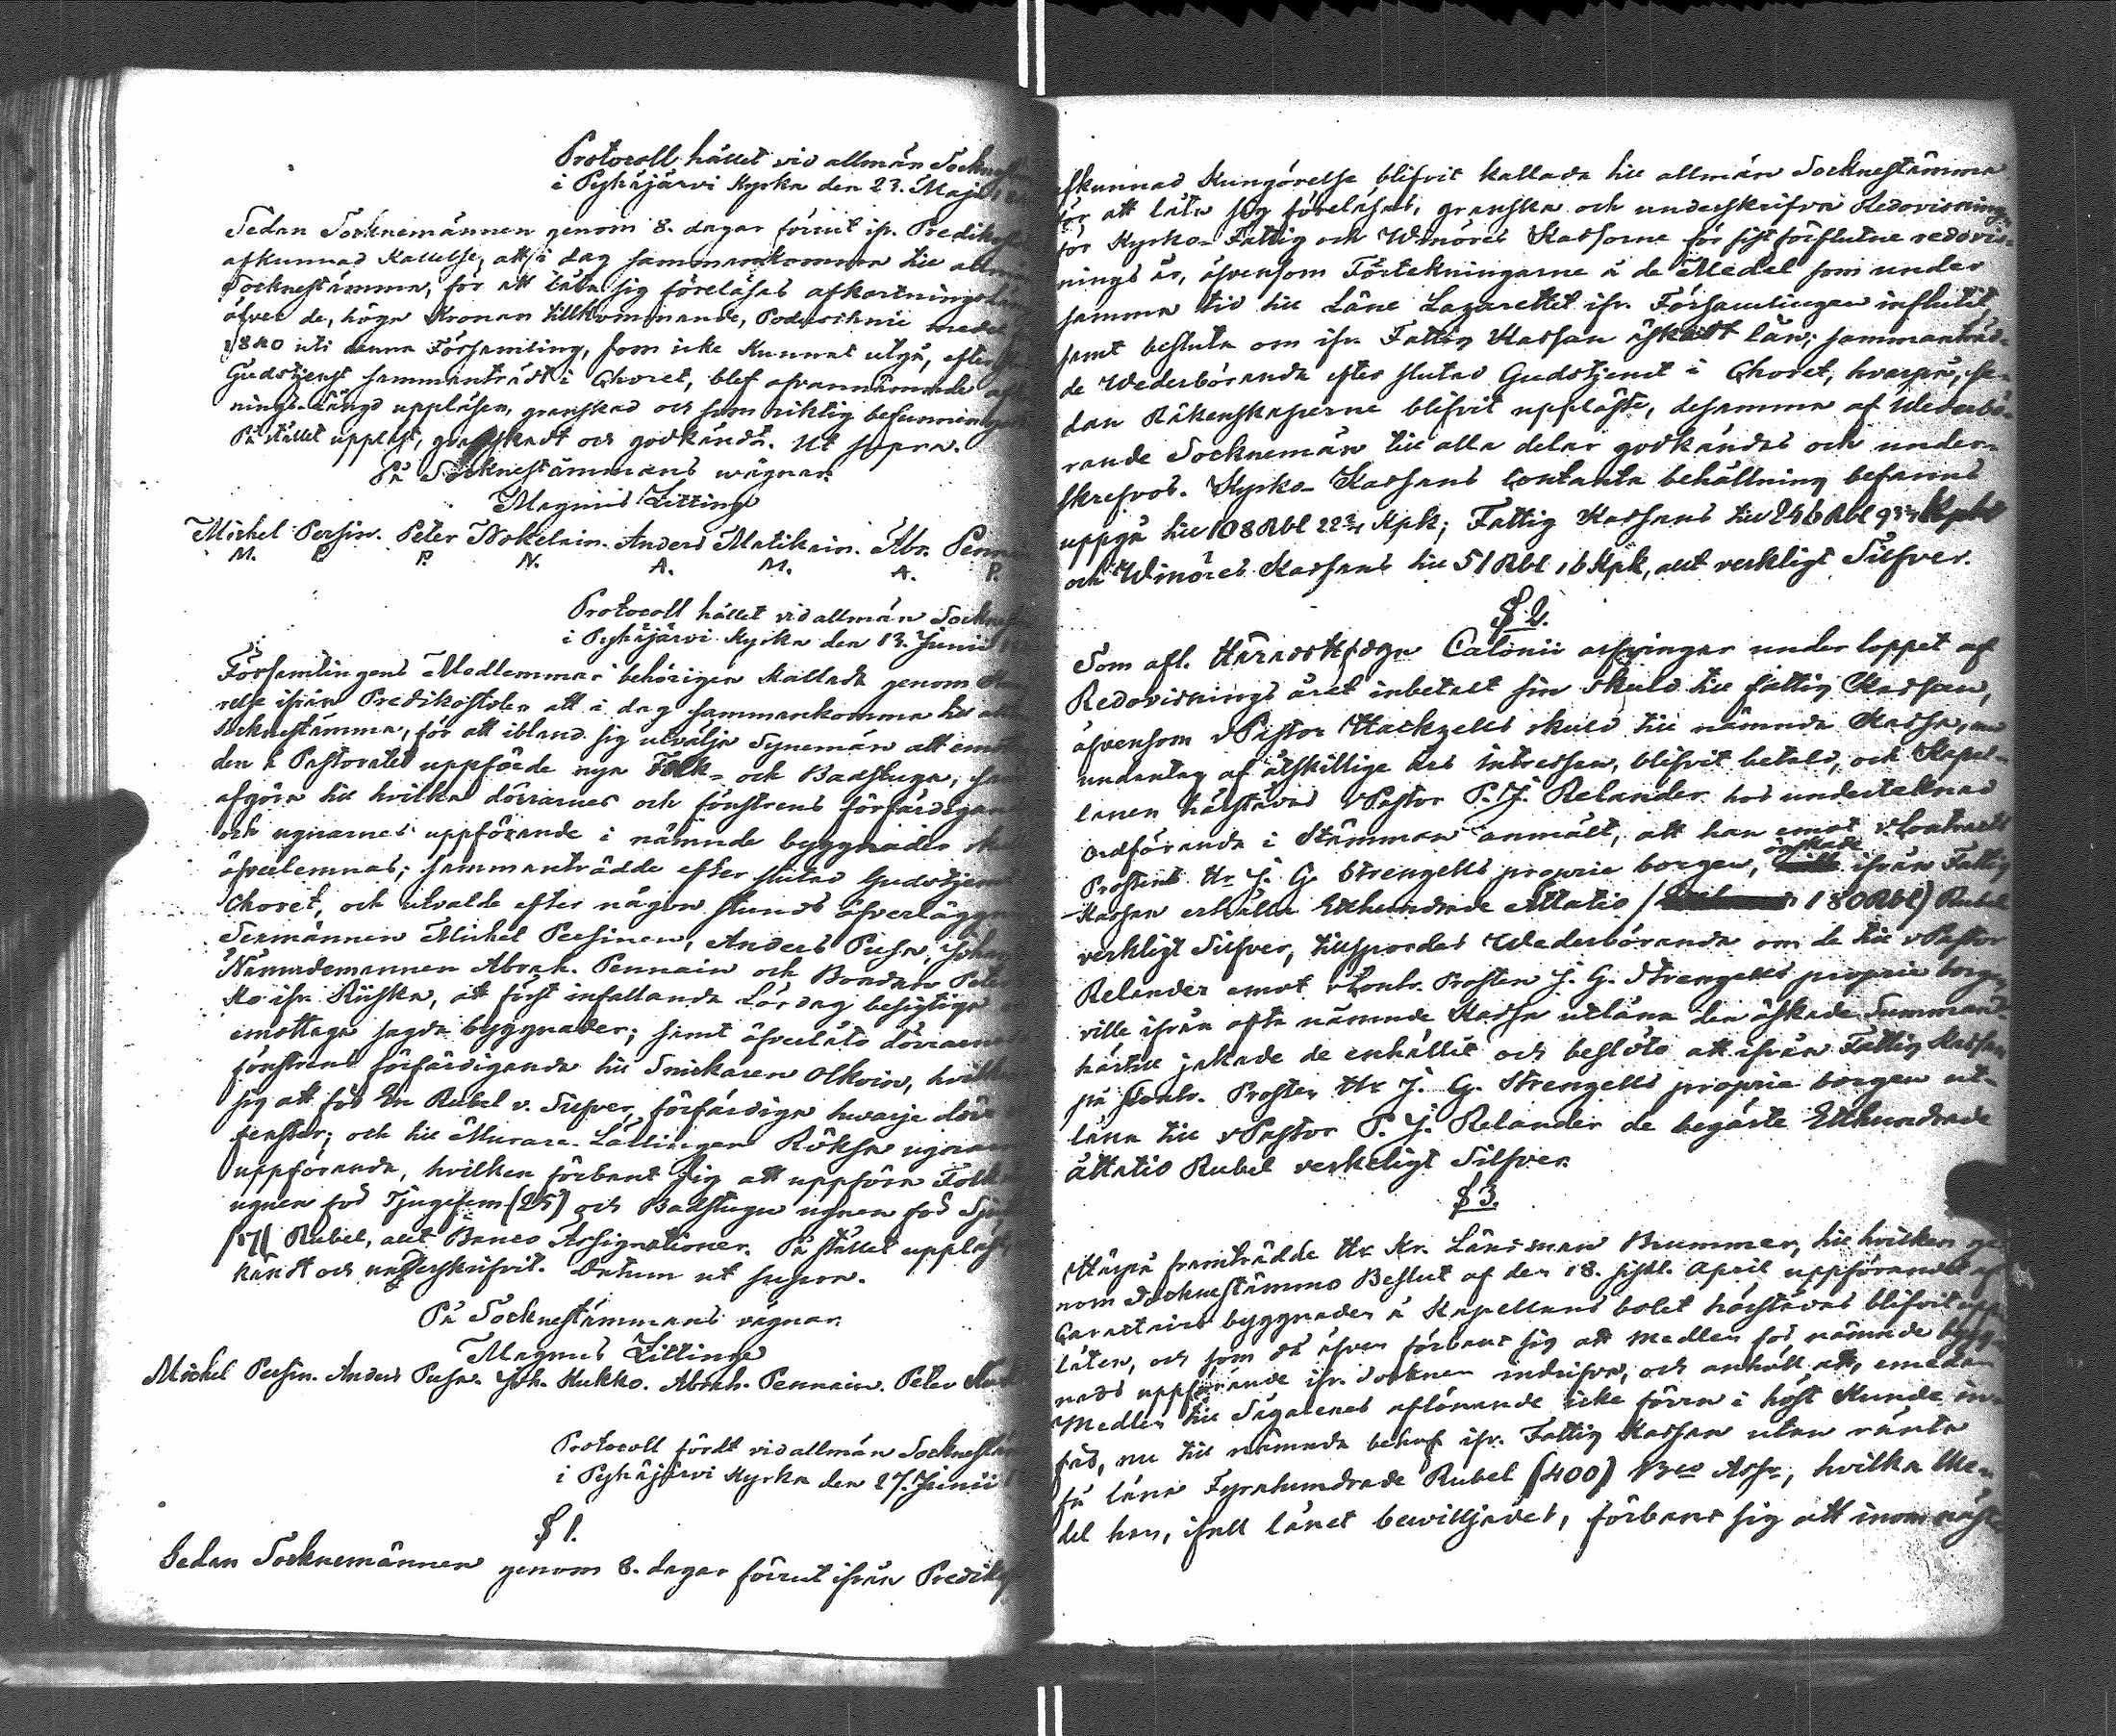 Protocoll hållet vid allmän Sockne
i Pyhäjärvi Kyrka den 23. Maji
Sedan Socknemännen genom 8. dagar förut ifr. Predik
afkunnad Kallelse, att i dag sammankomma till allm
Socknestämma, för att låta sig föreläsas afkortnings
öfver de, höga Kronan tillkommande, Poduschnie medel
1840 uti denna Församling, som icke kunnat utgå, efter
Gudstjenst sammanträdt i Choret, blef ofvannämnde
nings-Längd uppläsen, granskad och som riktig befunnen
På stället uppläst, granskadt och godkändt. Ut supra.
På Socknestämmans wägnar.
Magnus Litting
Michel Persin. Peter Nokelain. Anders Matikain. Abr. Penn
M. P. P. N. A. M. A. P.
Protocoll hållet vid allmän Sockne
i Pyhäjärvi Kyrka den 13. Junii
Församlingens Medlemmar behörigen kallade genom
relse ifrån Predikostolen att i dag sammankomma till
Socknestämma, för att ibland sig utvälja Synemän att
den å Pastoratet uppförde nya Folk- och Badstuga,
afgöra till hvilka dörrarnes och fönstrens förfärdigan
och ugnarnes uppförande i nämnde byggnader
öfverlemnas; sammanträdde efter slutad Gudstjen
Choret, och utvalde efter någon stunds öfverlägg
Sexmännen Michel Persinen, Anders Pusa,
Nämndemannen Abrah. Pennain och Bonden Pete
ko ifr. Riiska, att först infallande Lördag besigtiga
emottaga sagde byggnader; samt öfverläto dörrarne
fönstrens förfärdigande till Snickaren Olkoin,
sig att för En Rubel v. Silfver, förfärdiga hwarje
fenster; och till Murare-Lärlingen Röksa
uppförande, hvilken förbant sig att uppföra Folk
ugnen för Tjugefem (25) och Badstugu ugnen för
(17) Rubel, allt Banco Assignationer. På stället uppläst
kändt och underskrifvit. Datum ut supra.
På Socknestämmans vägnar
Magnus Litting
Michel Persin. Anders Pusa. Joh. Kukko. Abrah. Pennain. Peter
Protocoll fördt vid allmän Socknestä
i Pyhäjärvi Kyrka den 27. Junii
§ 1.
Sedan Socknemännen genom 8. dagar förut ifrån Predik
afkunnad Kungörelse blifvit kallade till allmän Socknestämma
för att låta sig föreläsas, granska och underskrifva Redovisning
för Kyrko- Fattig och Winöres Kassorne för sistförflutne redovis-
nings år, äfvensom Förtekningarne å de Medel som under
samma tid till Läne Lazarettet ifr. Församlingen influtit,
samt besluta om ifr. Fattig Kassan äskadt lån; sammanträd-
de Wederbörande efter slutad Gudstjenst i Choret, hvarpå, se-
dan Räkenskaperne blifvit uppläste, desamma af Wederbö-
rande Socknemän till alla delar godkändes och under-
skrefvos. Kyrko- Kassans contanta behållning befanns
uppgå till 108 Rbl 22 3/4 Kpk; Fattig Kassans till 246 Rbl
och Winöres Kassans till 51 Rbl 16 Kpk, allt verkligt Silfver.
§ 2.
Som afl. Häradshöfdge Calonii arfvingar under loppet af
Redovisnings året inbetalt sin skuld till fattig Kassan,
äfvensom vPastor Hackzells skuld till nämnda Kassa, med
undantag af åtskillige års intressen, blifvit betald, och Kapel-
lanen härstädes vPastor P. J. Relander hos undertecknad
Ordförande i Stämman anmält, att han emot vContracts
Prosten Hr J. G. Strengells proprie borgen, önskade ifrån Fattig
Kassan erhålla Etthundrade åttatio (180 Rbl) Rubel
verkligt Silfver, tillspordes Wederbörande om de till vPastor
Relander emot vContr. Prosten J. G. Strengells proprie borgen
ville ifrån ofta nämnde Kassa utlåna den äskade Summan?
härtill jakade de enhälligt och beslöto att ifrån Fattig Kassan
på vContr. Prosten Hr J. G. Strengells proprie borgen ut-
låna till vPastor P. J. Relander de begärte Etthundrade
åttatio Rubel verkeligt Silfver.
§ 3.
Härpå framträdde Hr Kr. Länsman Brummer, till hvilken ge-
nom Socknestämmo Beslut af den 18. sistl. April uppförandet af
Caractairs byggnaden å Kapellans bolet härstädes blifvit upp-
låten, och som då äfven förband sig att Medlen för nämnde bygg-
nads uppförande ifr. Socknen indrifva, och anhöll att, emedan
Medlen till Sågarenes aflönande icke förrn i höst kunde in-
fås, nu till nämnda behof ifr. Fattig Kassan utan ränta
få låna Fyrahundrade Rubel (400) Bco Assr, hvilka Me-
del han, ifall lånet bewilljades, förband sig att inom näst